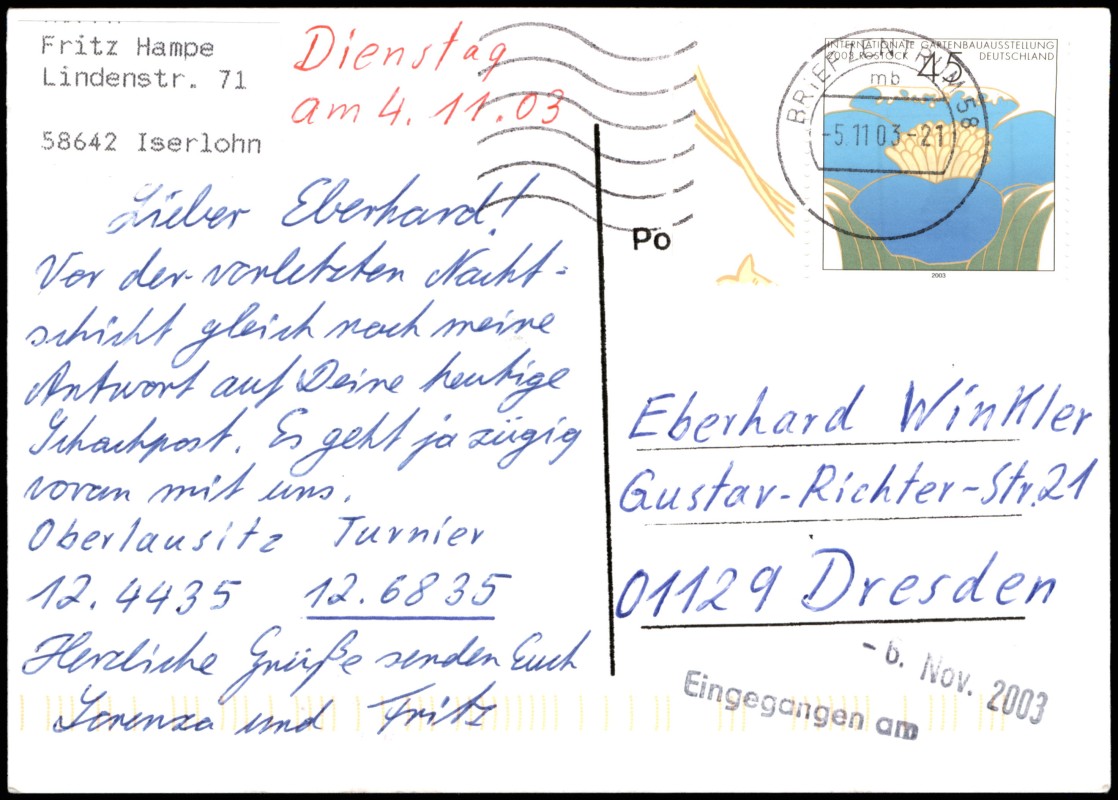 Fritz Hampe
Lindenstr. 71
58642 Iserlohn
Dienstag
am 4. 11. 03
Lieber Eberhard!
Vor der vorletzten Nacht-
schicht gleich noch meine
Antwort auf Deine heutige
Schachpost. Es geht ja zügig
voran mit uns.
Oberlausitz Turnier
12. 4435 12. 6835
Herzliche Grüße senden Euch
Lorenza und Fritz
Po
INTERNATIONALE GARTENBAUAUSSTELLUNG
2003 ROSTOCK DEUTSCHLAND
45
2003
BRIEFZENTRUM 58
mb
-5.11.03-21
Eberhard Winkler
Gustav-Richter-Str. 21
01129 Dresden
-6. Nov. 2003
Eingegangen am